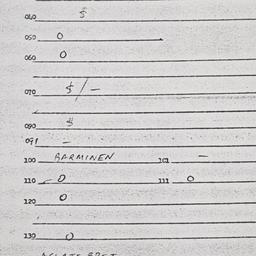 040 $
050 0
060 0
070 $/-
090 $
091 -
100 BARMINEN 101 -
110 0 111 0
120 0
130 0